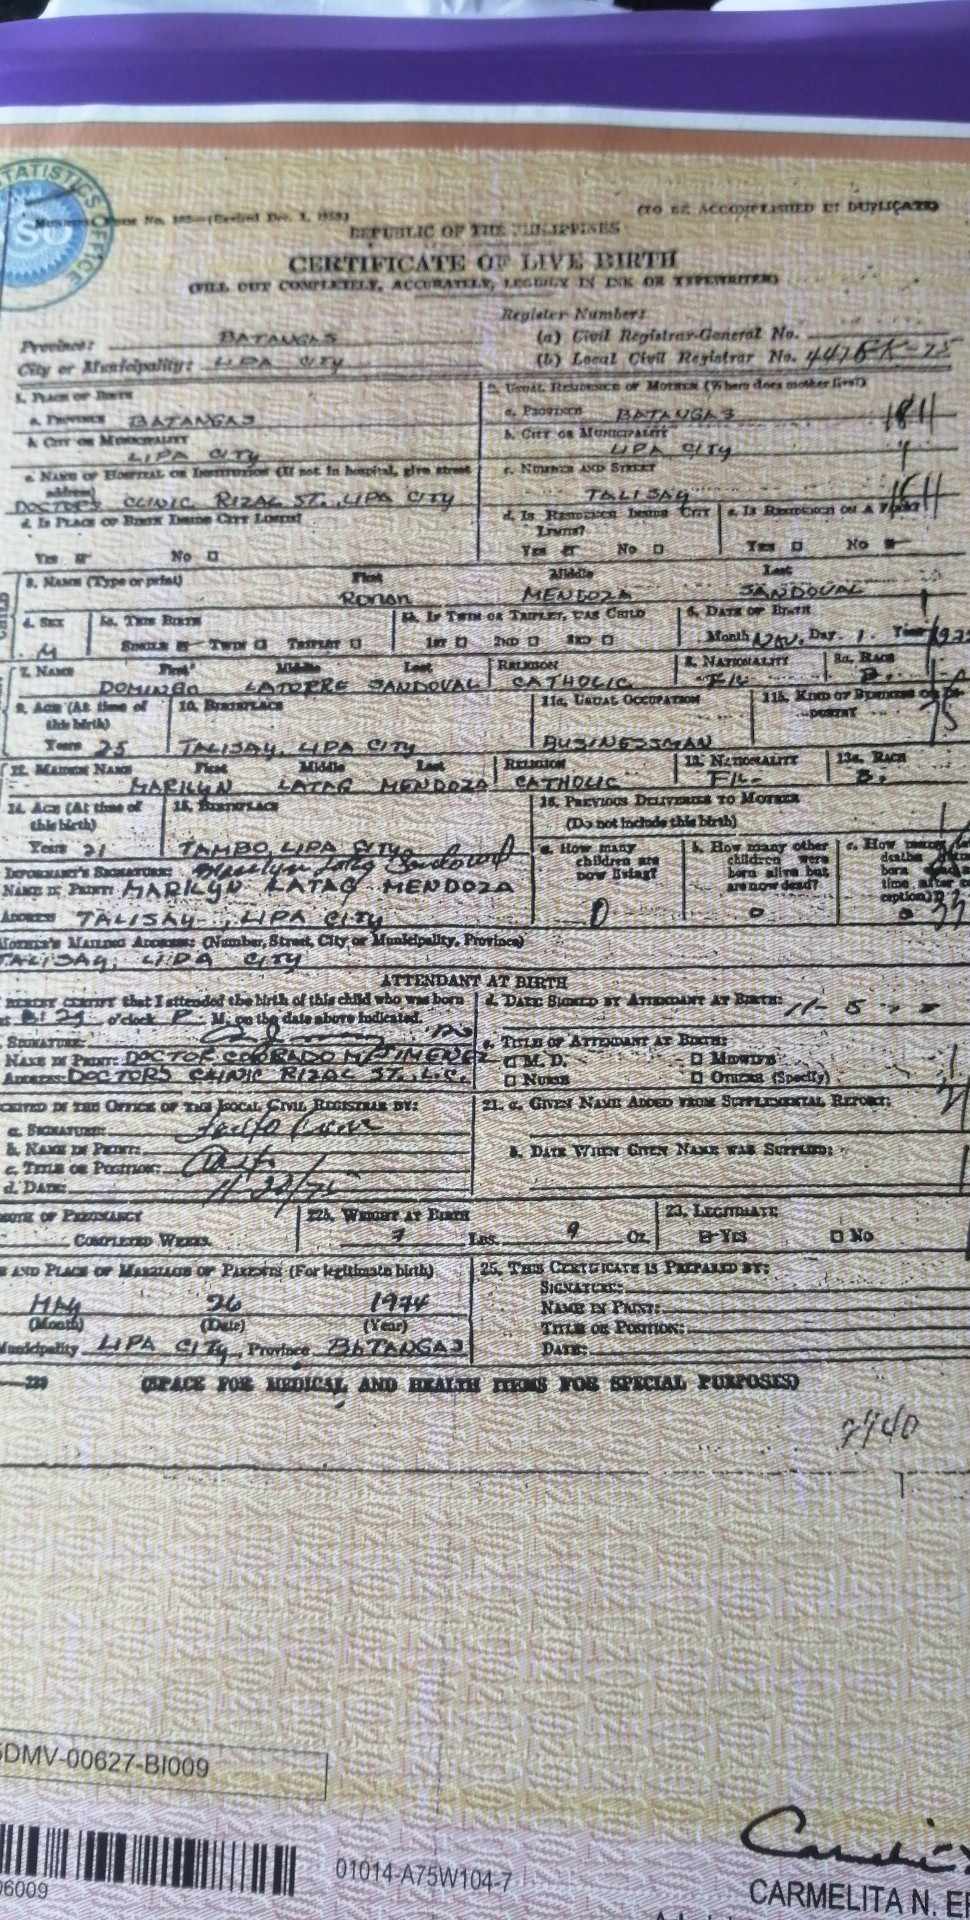 STATISTICS OFFICE
(TO BE ACCOMPLISHED IN DUPLICATE)
REPUBLIC OF THE PHILIPPINES
CERTIFICATE OF LIVE BIRTH
(FILL OUT COMPLETELY, ACCURATELY, LEGIBLY IN INK OR TYPEWRITER)
Register Number:
Province: BATANGAS (a) Civil Registrar-General No.
City or Municipality: LIPA CITY (b) Local Civil Registrar No.
1. PLACE OF BIRTH 2. USUAL RESIDENCE OF MOTHER (Where does mother live?)
a. PROVINCE BATANGAS a. PROVINCE BATANGAS
b. CITY OR MUNICIPALITY b. CITY OR MUNICIPALITY
LIPA CITY LIPA CITY
c. NAME OF HOSPITAL OR INSTITUTION (If not in hospital, give street address) c. NUMBER AND STREET
DOCTORS CLINIC RIZAL ST., LIPA CITY TALISAY
d. IS PLACE OF BIRTH INSIDE CITY LIMITS? d. IS RESIDENCE INSIDE CITY LIMITS? e. IS RESIDENCE ON A
YES NO YES NO YES NO
3. NAME (Type or print) First Middle Last
MENDOZA SANDOVAL
4. SEX 5a. THIS BIRTH 5b. IF TWIN OR TRIPLET, WAS CHILD 6. DATE OF BIRTH
M SINGLE TWIN TRIPLET 1ST 2ND 3RD Month NOV. Day 1 Year
7. NAME First Middle Last RELIGION 8. NATIONALITY 8a. RACE
DOMINGO LATORRE SANDOVAL CATHOLIC FIL. B.
9. AGE (At time of this birth) 10. BIRTHPLACE 11a. USUAL OCCUPATION 11b. KIND OF BUSINESS OR
Years 25 TALISAY, LIPA CITY BUSINESSMAN
12. MAIDEN NAME First Middle Last RELIGION 13. NATIONALITY 13a. RACE
MARILYN LATAG MENDOZA CATHOLIC FIL- B.
14. AGE (At time of this birth) 15. BIRTHPLACE 16. PREVIOUS DELIVERIES TO MOTHER
(Do not include this birth)
Years 21 TAMBO, LIPA CITY
a. How many children are now living? b. How many other children were born alive but are now dead? c. How many
0 0 0
INFORMANT'S SIGNATURE: Marilyn Latag Sandoval
NAME IN PRINT: MARILYN LATAG MENDOZA
ADDRESS TALISAY, LIPA CITY
MOTHER'S MAILING ADDRESS: (Number, Street, City or Municipality, Province)
TALISAY, LIPA CITY
ATTENDANT AT BIRTH
HEREBY CERTIFY that I attended the birth of this child who was born d. DATE SIGNED BY ATTENDANT AT BIRTH:
o'clock P. M. on the date above indicated. 11-5
SIGNATURE: e. TITLE OF ATTENDANT AT BIRTH:
NAME IN PRINT: DOCTOR M. JIMENEZ M. D. MIDWIFE
ADDRESS: DOCTORS CLINIC RIZAL ST., L.C. NURSE OTHERS (Specify)
IN THE OFFICE OF THE LOCAL CIVIL REGISTRAR BY: 21. a. GIVEN NAME ADDED FROM SUPPLEMENTAL REPORT:
a. SIGNATURE:
b. NAME IN PRINT: b. DATE WHEN GIVEN NAME WAS SUPPLIED:
c. TITLE OR POSITION:
d. DATE:
OF PREGNANCY 22b. WEIGHT AT BIRTH 23. LEGITIMATE
COMPLETED WEEKS. 7 LBS. 9 OZ. YES NO
AND PLACE OF MARRIAGE OF PARENTS (For legitimate birth) 25. THIS CERTIFICATE IS PREPARED BY:
SIGNATURE:
MAY 26 1974 NAME IN PRINT:
(Month) (Date) (Year) TITLE OR POSITION:
Municipality LIPA CITY, Province BATANGAS DATE:
(SPACE FOR MEDICAL AND HEALTH ITEMS FOR SPECIAL PURPOSES)
DMV-00627-BI009
06009 01014-A75W104-7
CARMELITA N.